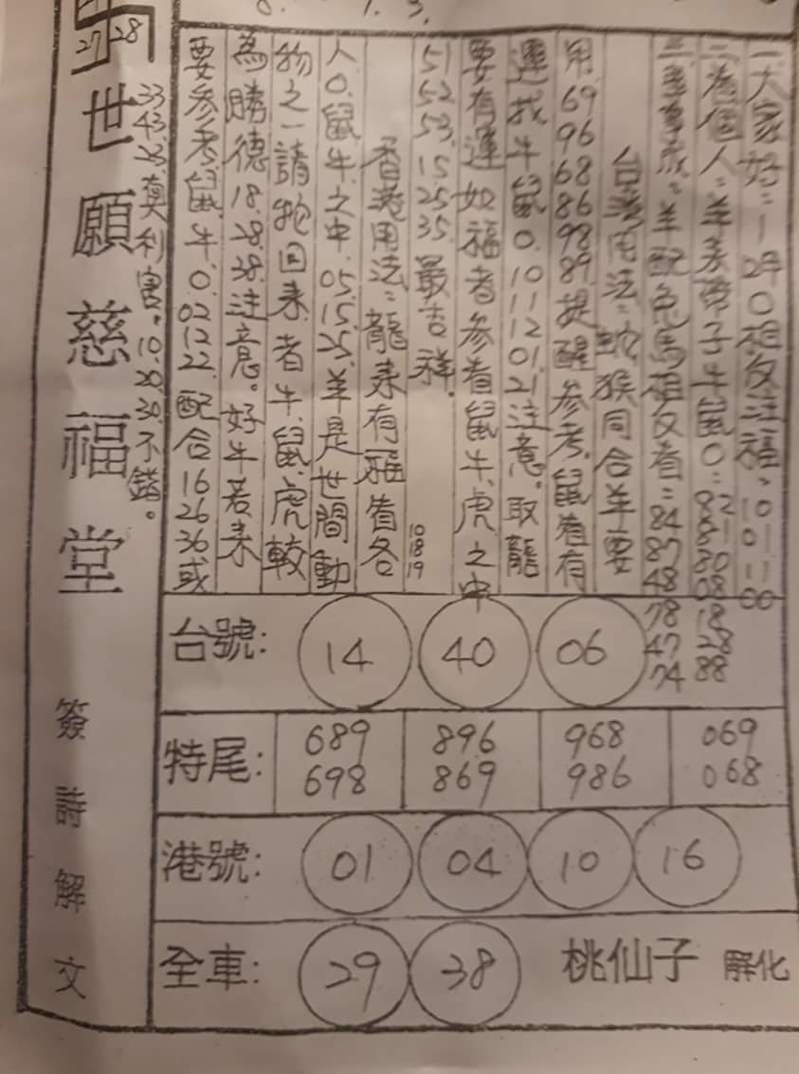 27 28
一大家好:1 2月0相反注福、10 01 11 00
羊配兔馬相反者:84 87 48 78 47 74
台灣用法:蛇猴同合羊要
用.69 96 68 86 98 89.提醒參考.鼠猪有
運找牛鼠0.10 11 12 01 21注意。取龍
要有運如福者參看鼠牛.虎之中
51 52 53.15 25 35.最吉祥. 10 18 19
香港用法:龍來有雞者各
人0.鼠牛之中.05.15.25.羊是世間動
物之一請牠回来.者牛.鼠.虎較
為勝德18.28.38注意。好牛若来
要參考.鼠.牛.0.02 12 22.配合16 26 36或
33 43 23.真利害。10.20.30.不錯。
世願慈福堂
簽詩解文
台號: 14 40 06
特尾: 689 896 968 069
698 869 986 068
港號: 01 04 10 16
全車: 29 38 桃仙子 解化